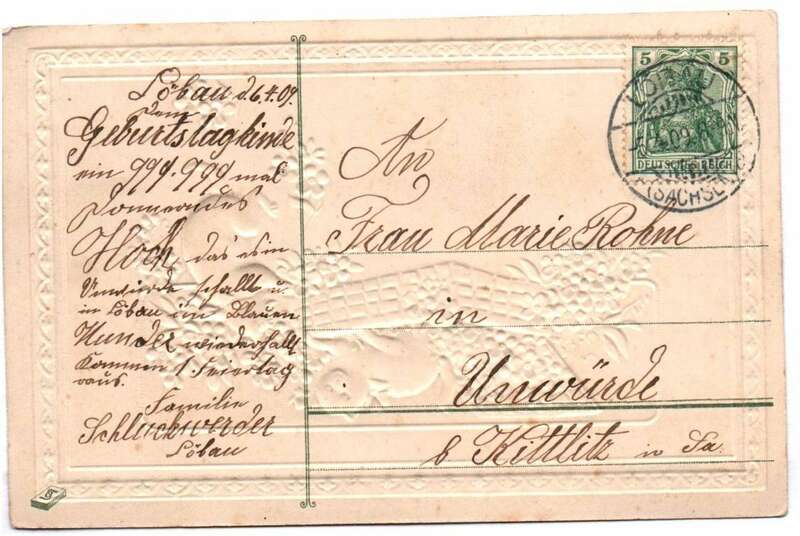 Löbau d. 6.4.09.
Dem
Geburtstagkinde
ein 999.999 mal
Donnerndes
Hoch, das es in
Unwürde schallt u.
in Löbau im Blauen
Hunde wiederhallt
Kommen 1. Feiertag
raus.
Familie
Löbau
An
Frau Marie Rohne
in
Unwürde
b Kittlitz in Sa.
5 5
DEUTSCHES REICH
LÖBAU
(SACHSEN)